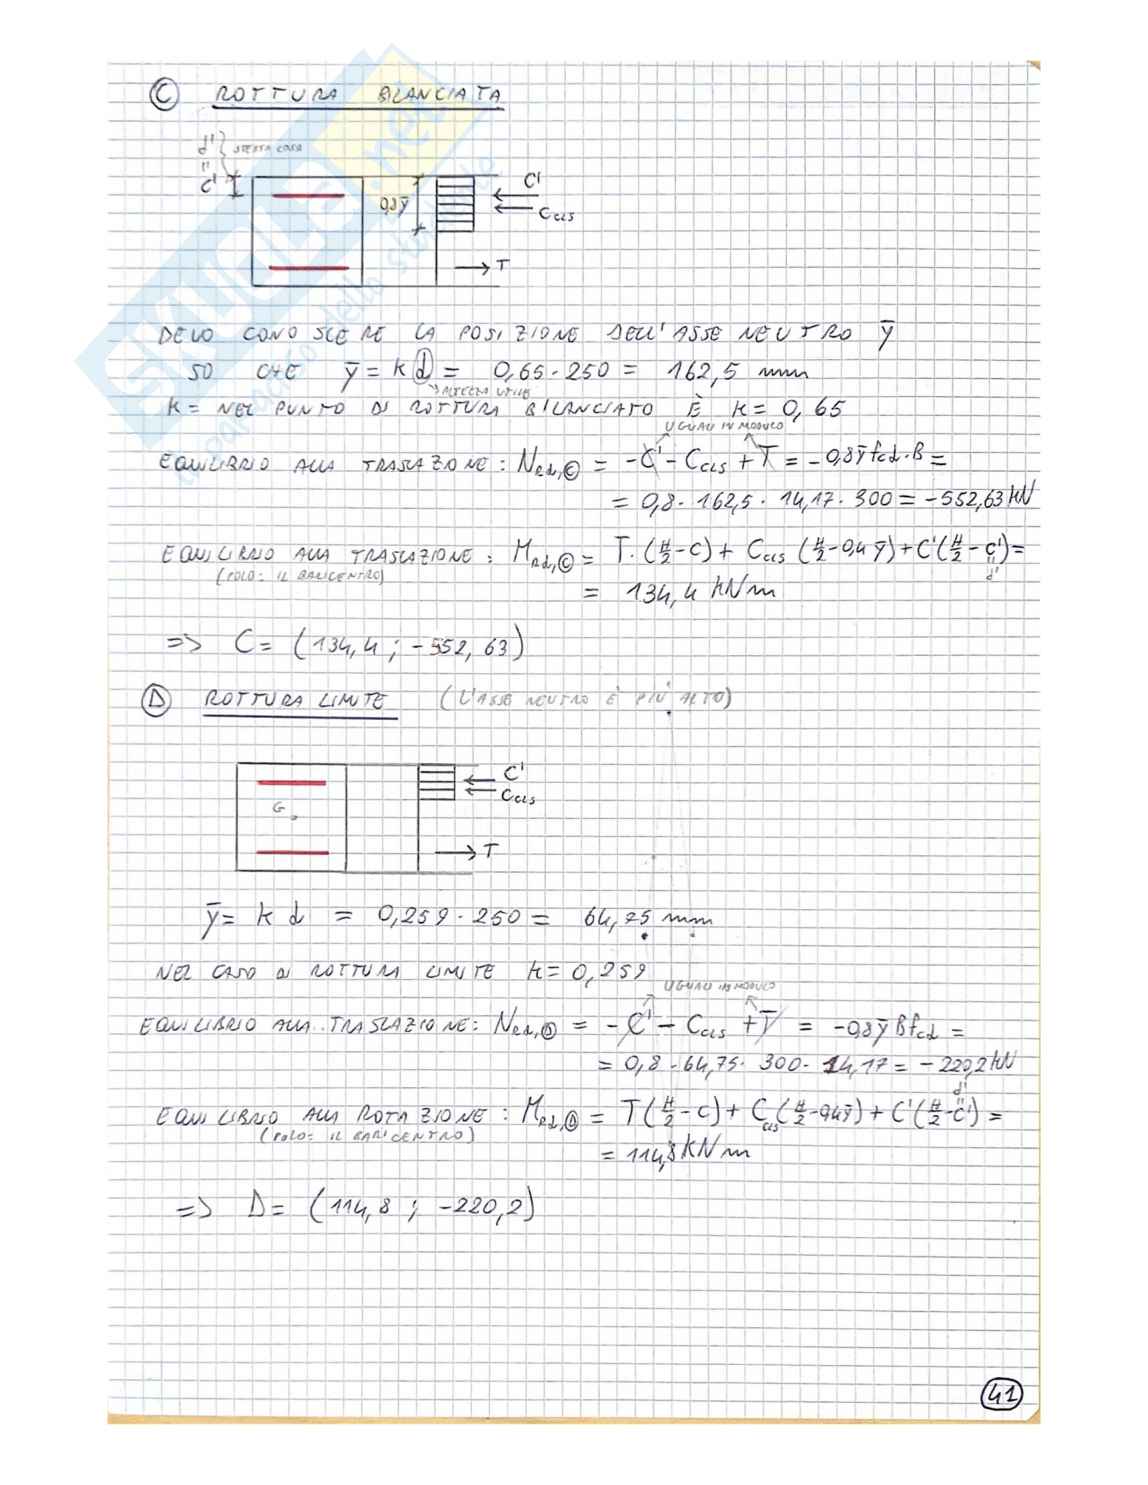 Ⓒ ROTTURA BILANCIATA
d' } STESSA COSA
"
c'
0,8ȳ
C'
Ccls
T
DEVO CONOSCERE LA POSIZIONE DELL'ASSE NEUTRO ȳ
SO CHE ȳ = k d = 0,65 · 250 = 162,5 mm
→ ALTEZZA UTILE
K = NEL PUNTO DI ROTTURA BILANCIATO È K = 0,65
UGUALI IN MODULO
EQUILIBRIO ALLA TRASLAZIONE : NRd,Ⓒ = -C' - Ccls + T = -0,8ȳ fcd · B =
= 0,8 · 162,5 · 14,17 · 300 = -552,63 kN
EQUILIBRIO ALLA TRASLAZIONE : MRd,Ⓒ = T · (H/2 - c) + Ccls (H/2 - 0,4 ȳ) + C'(H/2 - c') =
(POLO: IL BARICENTRO)
"
d'
= 134,4 kNm
=> C = (134,4 ; -552,63)
Ⓓ ROTTURA LIMITE (L'ASSE NEUTRO È PIÙ ALTO)
C'
Ccls
G
T
ȳ = k d = 0,259 · 250 = 64,75 mm
NEL CASO DI ROTTURA LIMITE K = 0,259
UGUALI IN MODULO
EQUILIBRIO ALLA TRASLAZIONE : NRd,Ⓓ = -C' - Ccls + T = -0,8ȳ B fcd =
= 0,8 · 64,75 · 300 · 14,17 = -220,2 kN
d'
"
EQUILIBRIO ALLA ROTAZIONE : MRd,Ⓓ = T (H/2 - c) + Ccls (H/2 - 0,4ȳ) + C'(H/2 - c') =
(POLO: IL BARICENTRO)
= 114,8 kNm
=> D = (114,8 ; -220,2)
41
SKUOLA.net